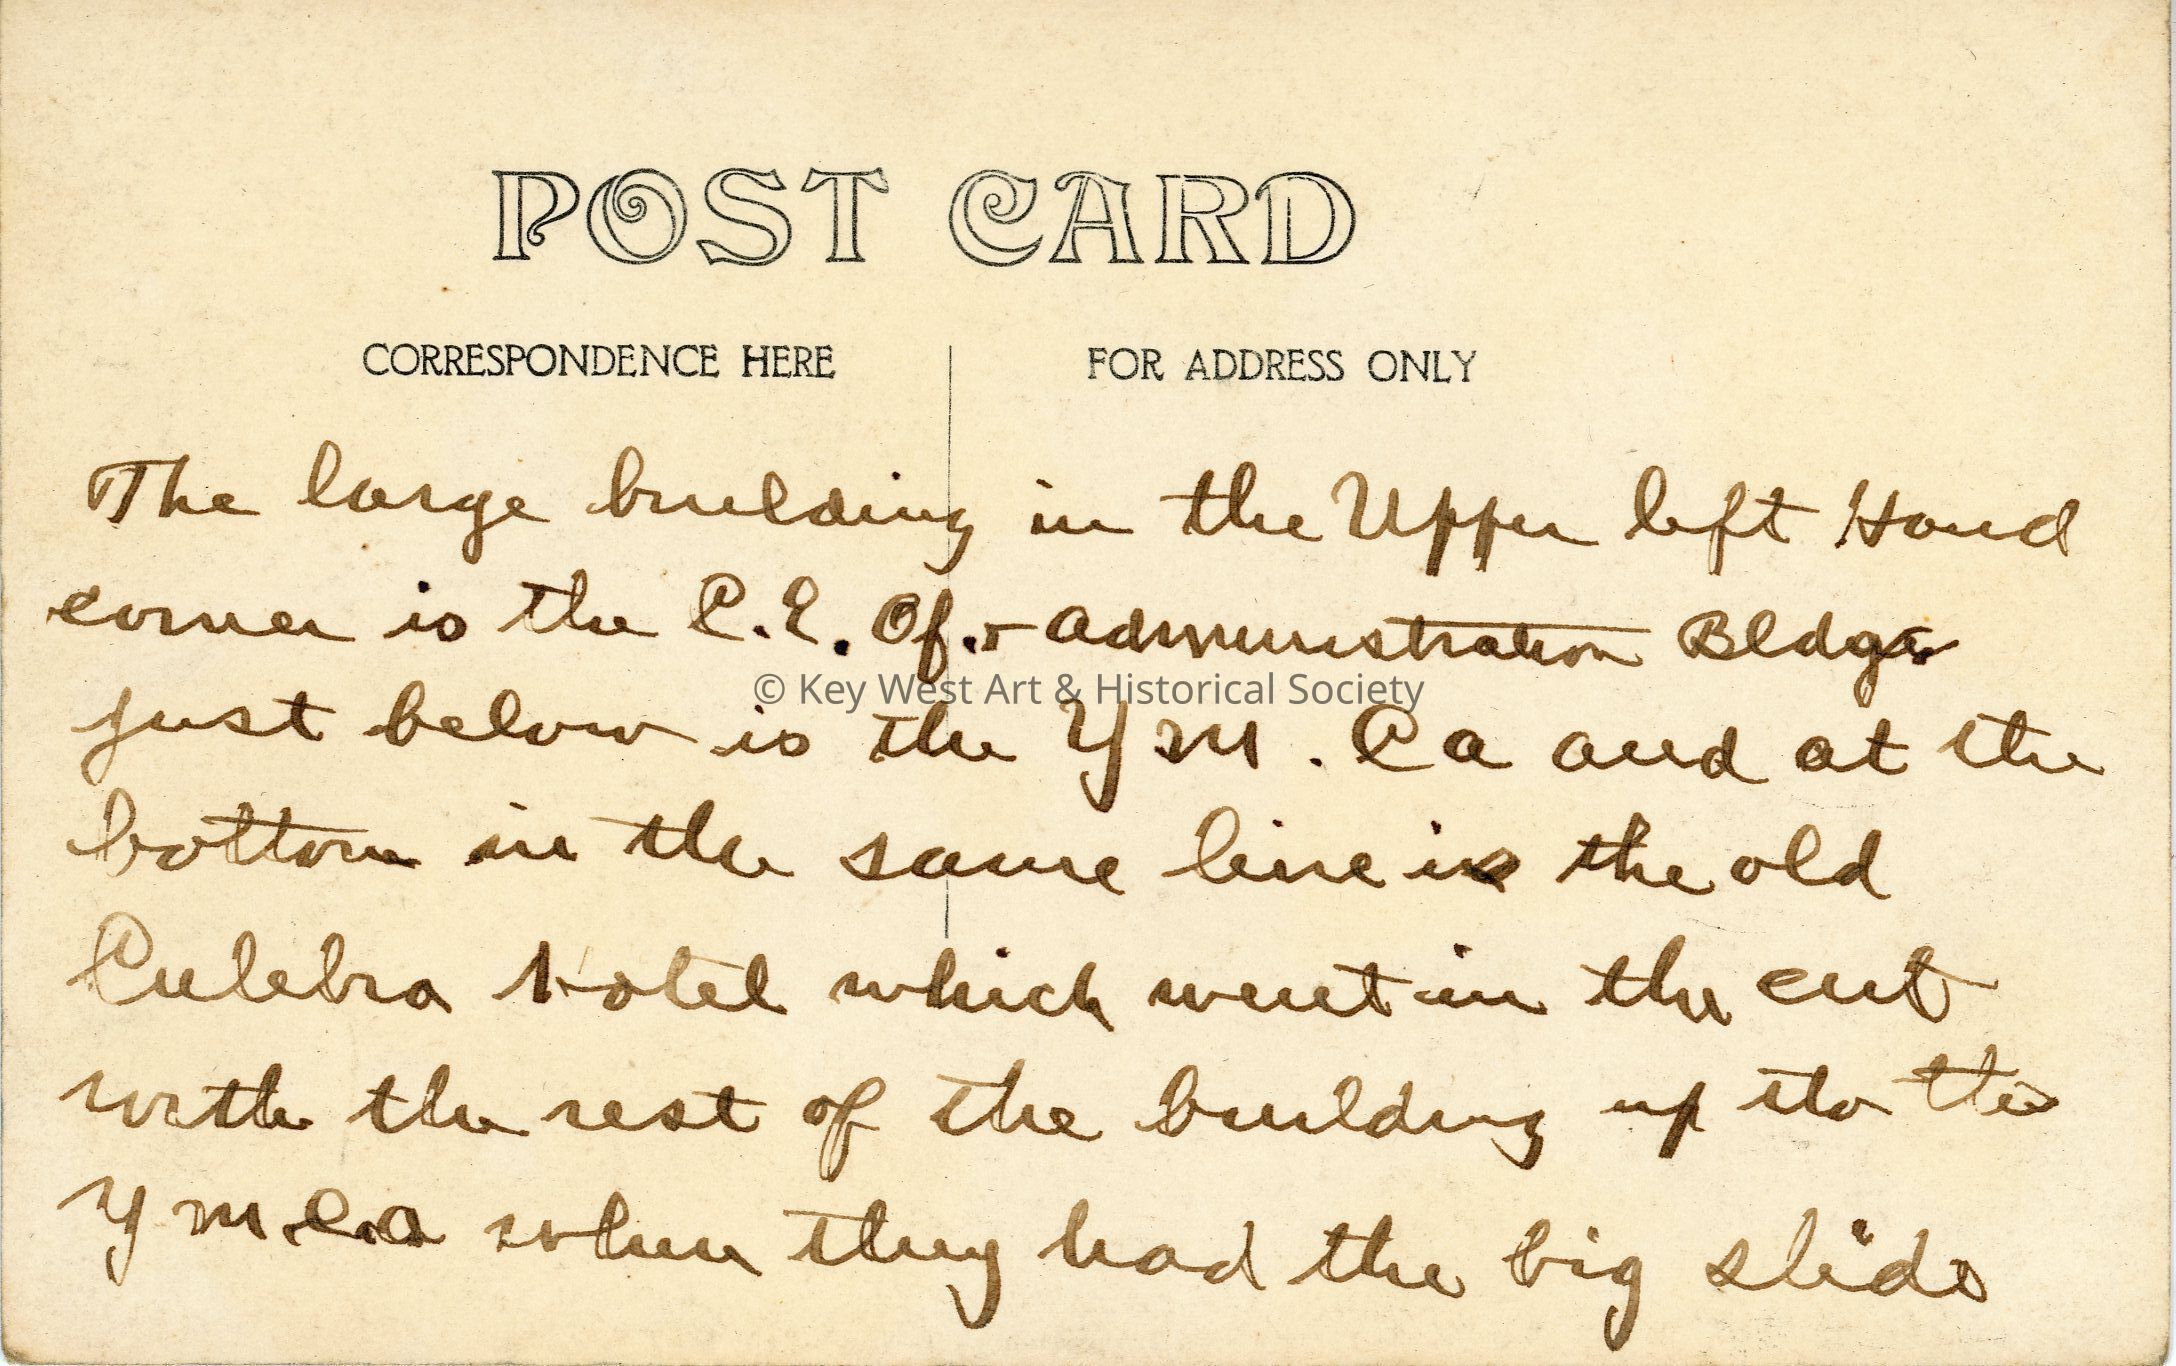 POST CARD
CORRESPONDENCE HERE
FOR ADDRESS ONLY
The large building in the Upper left Hand
corner is the C.E. Of. + Administration Bldg.
© Key West Art & Historical Society
just below is the Y M. C a and at the
bottom in the same line is the old
Culebra Hotel which went in the cut
with the rest of the building up to the
Y M.C.a when they had the big slide